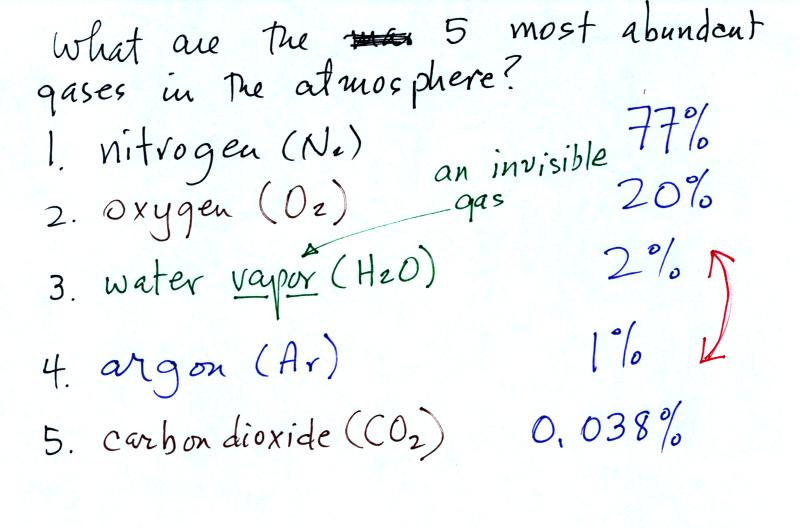 What are the 5 most abundant
gases in the atmosphere?
1. nitrogen (N2) 77%
an invisible
gas
2. oxygen (O2) 20%
3. water vapor (H2O) 2%
4. argon (Ar) 1%
5. carbon dioxide (CO2) 0.038%